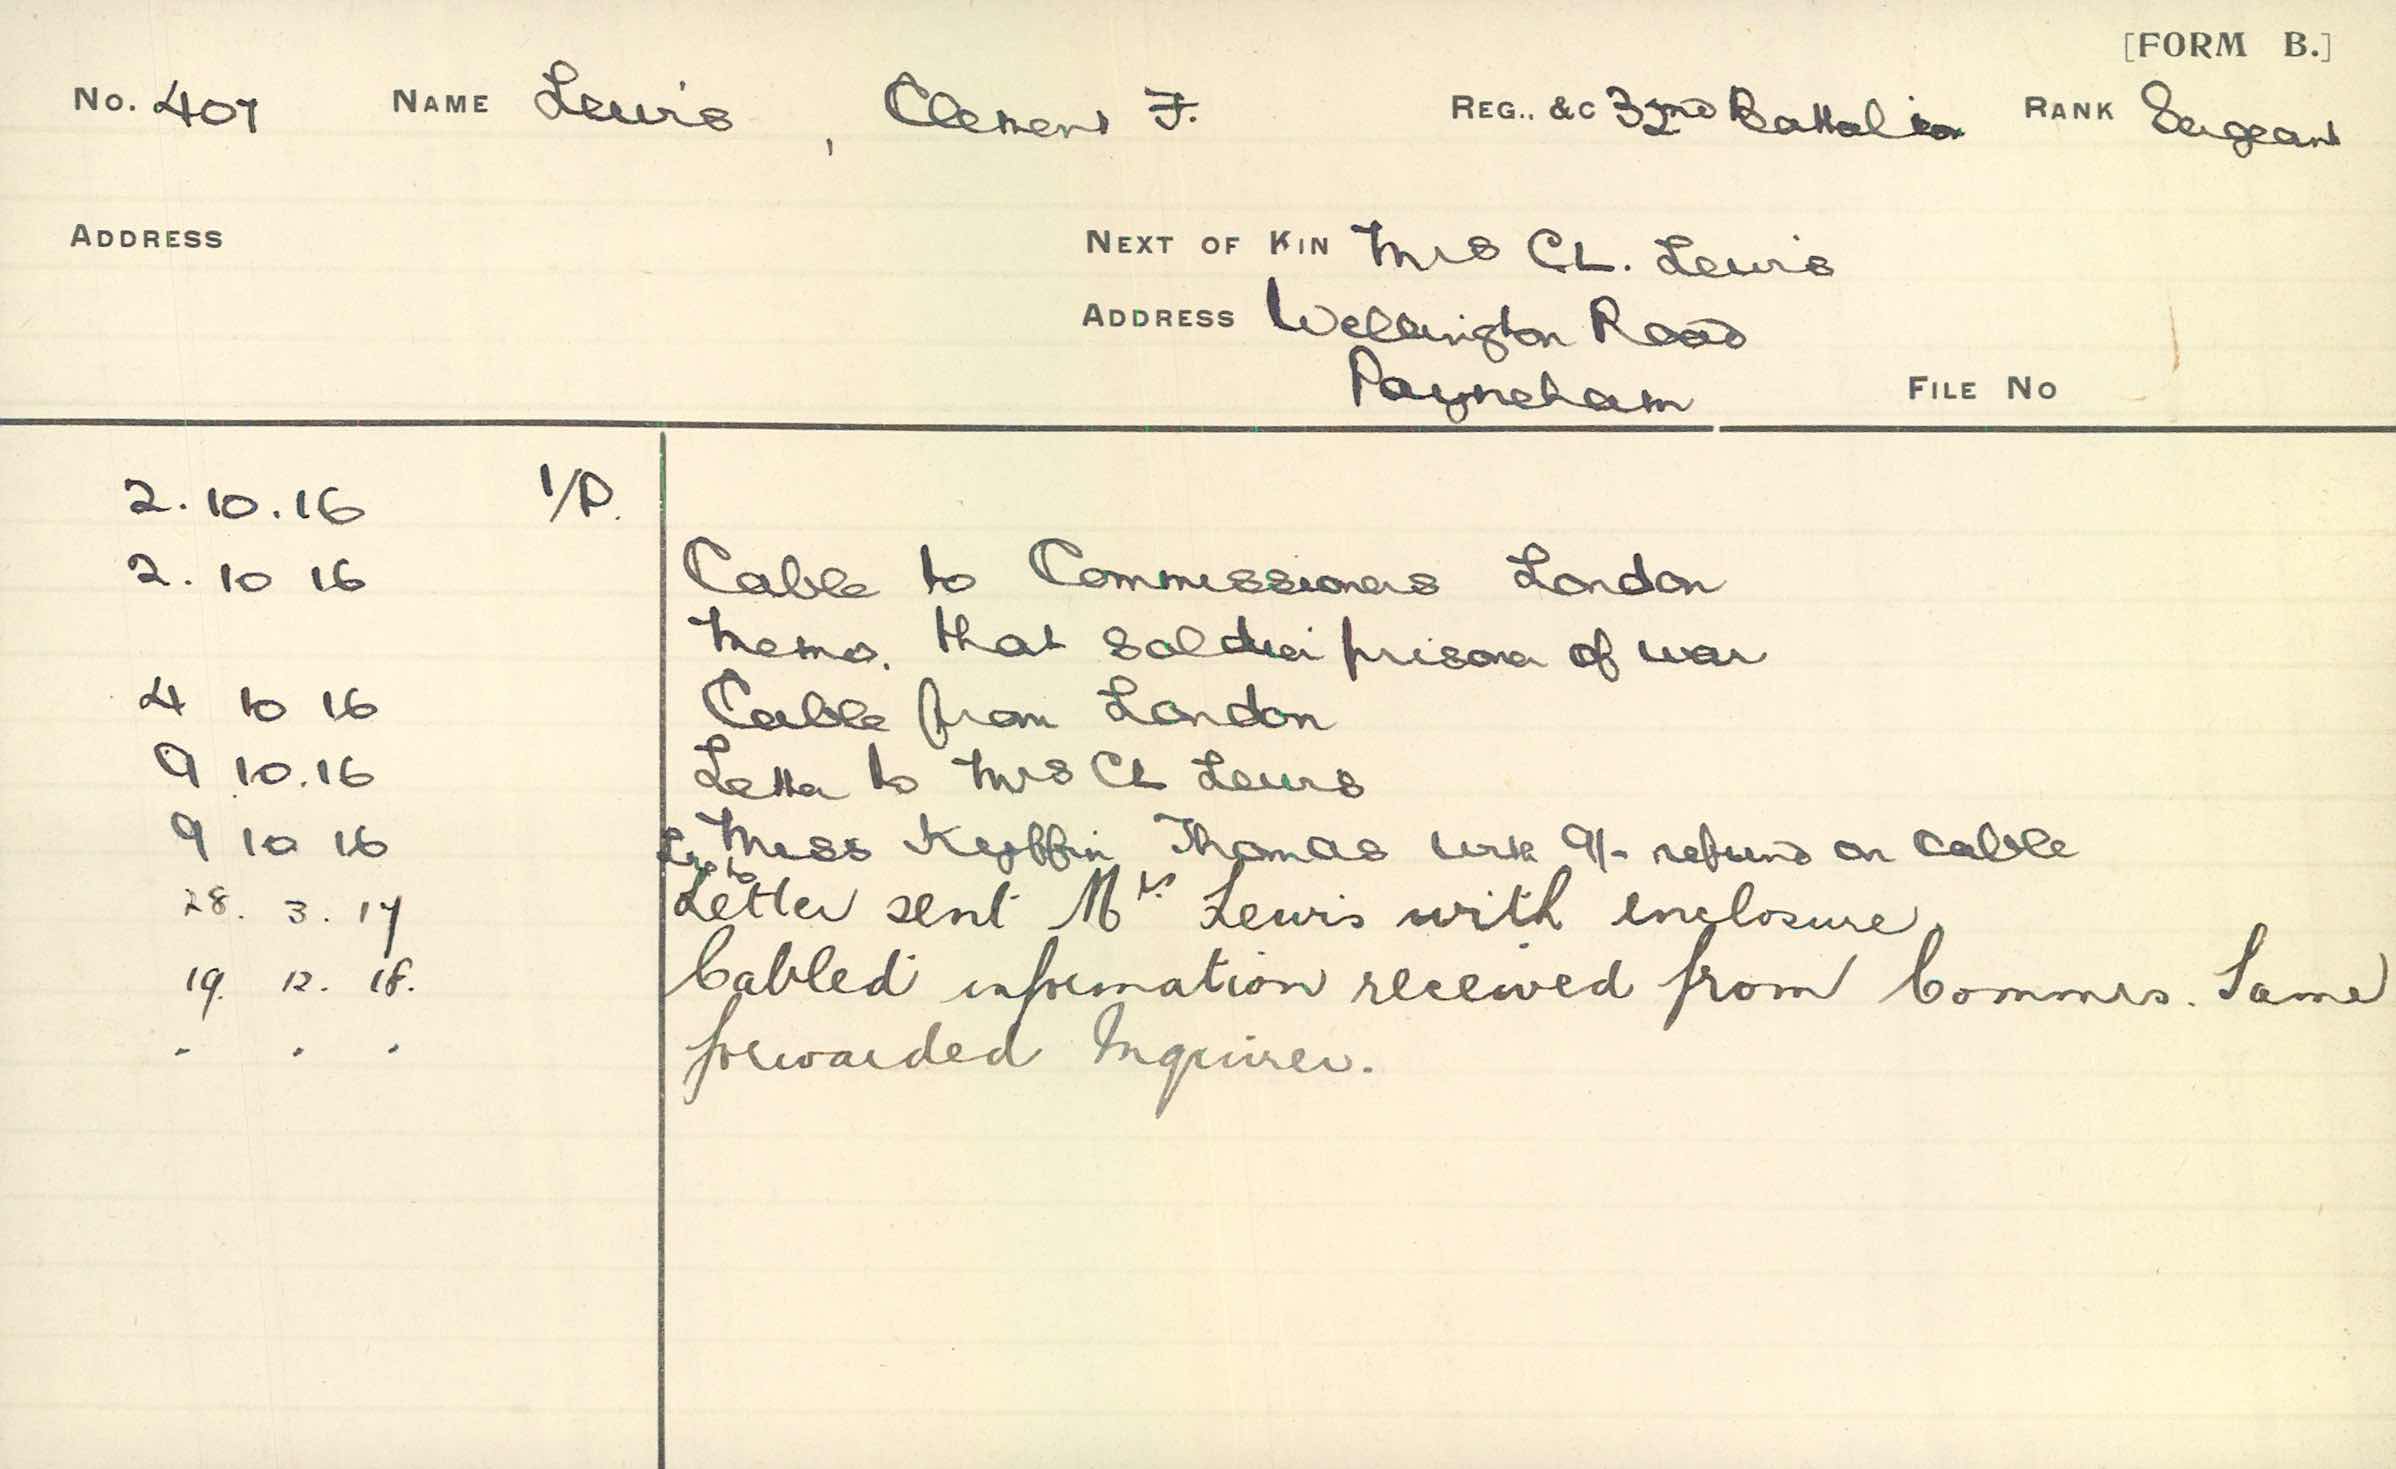 [FORM B.]
No. 407 NAME Lewis, Clement F. REG., &C 32nd Battalion RANK Sergeant
ADDRESS NEXT OF KIN Mrs CL. Lewis
ADDRESS Wellington Road
Payneham
FILE NO
2.10.16 1/P.
2.10 16 Cable to Commissioners London
Memo. that soldier prisoner of war
4 10 16 Cable from London
9 10.16 Letter to Mrs CL Lewis
9 10 16 Miss Kyffin Thomas with 9/- refund on cable
to
28. 3. 17 Letter sent Mrs. Lewis with enclosure.
19. 12. 18. Cabled information received from Commrs. Same
. . . forwarded Inquirer.